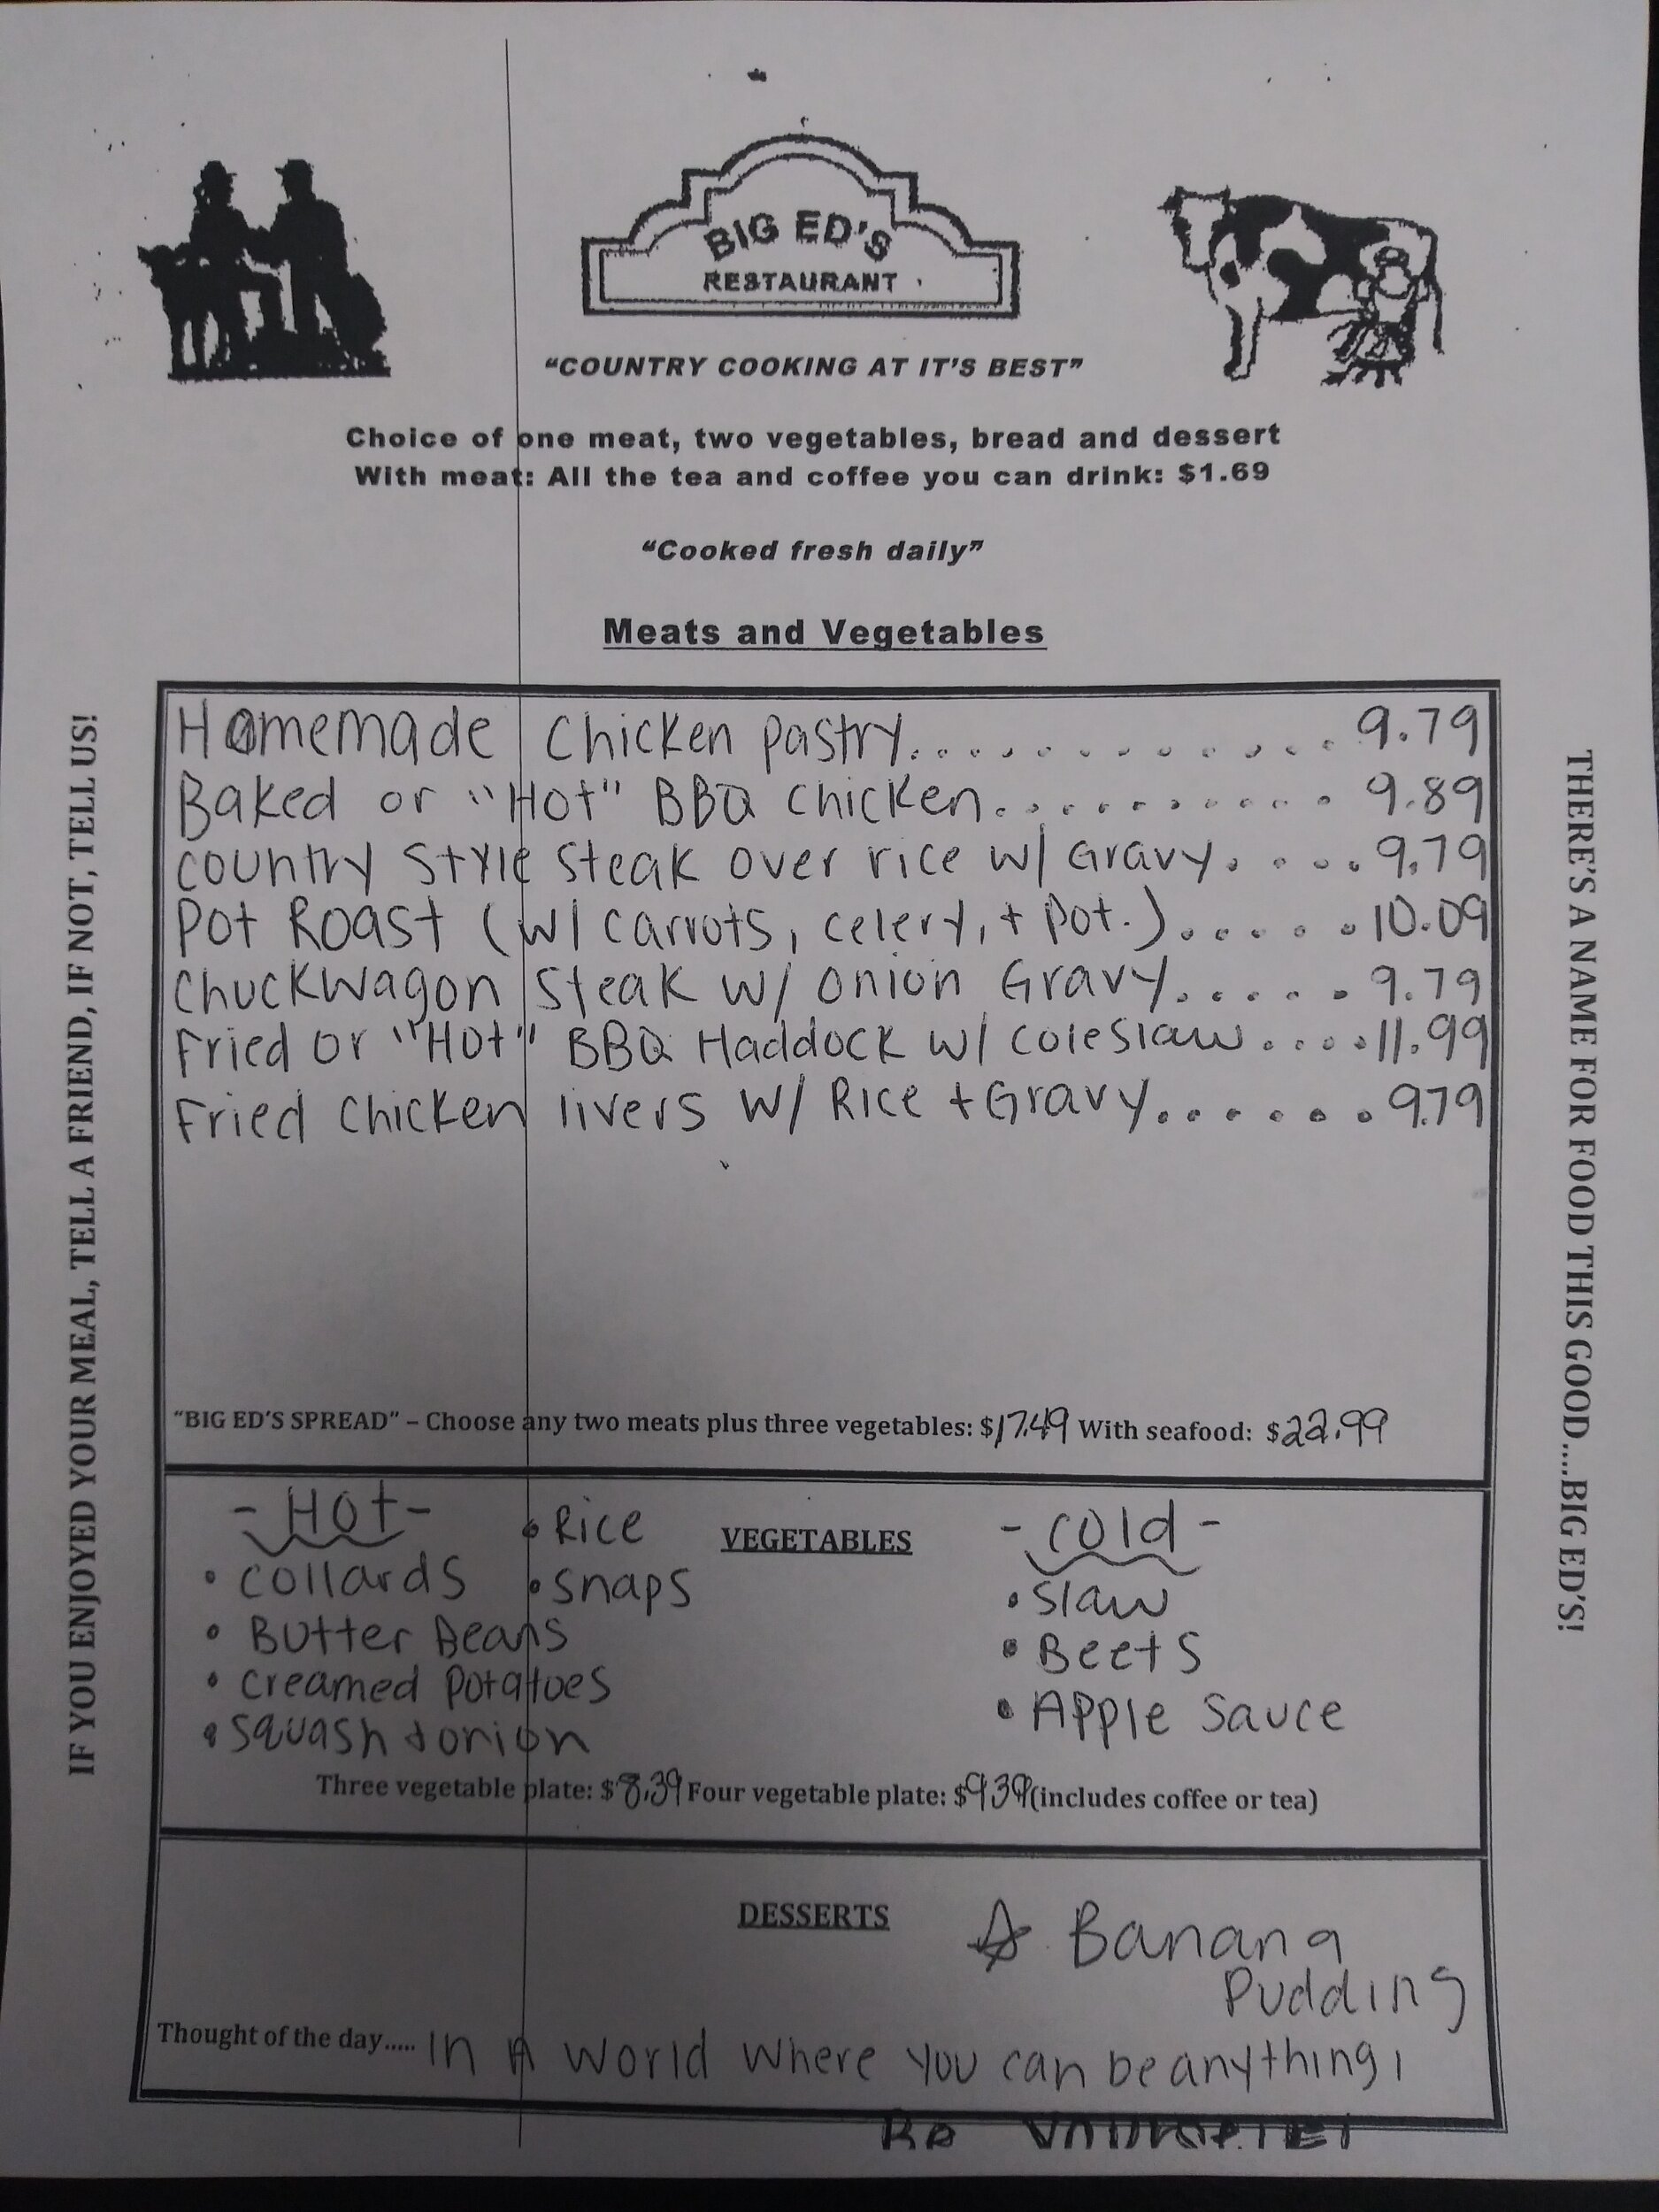 BIG ED'S
RESTAURANT
"COUNTRY COOKING AT IT'S BEST"
Choice of one meat, two vegetables, bread and dessert
With meat: All the tea and coffee you can drink: $1.69
"Cooked fresh daily"
Meats and Vegetables
IF YOU ENJOYED YOUR MEAL, TELL A FRIEND, IF NOT, TELL US!
THERE'S A NAME FOR FOOD THIS GOOD....BIG ED'S!
Homemade Chicken pastry.............. 9.79
Baked or "Hot" BBQ Chicken........... 9.89
Country Style Steak over rice w/ Gravy..... 9.79
Pot Roast (w/ carrots, celery, + Pot.)...... 10.09
Chuckwagon Steak w/ onion Gravy...... 9.79
Fried or "Hot" BBQ Haddock w/ coleslaw..... 11.99
Fried Chicken livers w/ Rice + Gravy....... 9.79
"BIG ED'S SPREAD" – Choose any two meats plus three vegetables: $17.49 With seafood: $22.99
VEGETABLES
- Hot -
• Collards
• Butter Beans
• Creamed Potatoes
• Squash + onion
• Rice
• Snaps
- Cold -
• Slaw
• Beets
• Apple Sauce
Three vegetable plate: $8.39 Four vegetable plate: $9.39 (includes coffee or tea)
DESSERTS
☆ Banana
Pudding
Thought of the day..... In A World Where you can be anything,